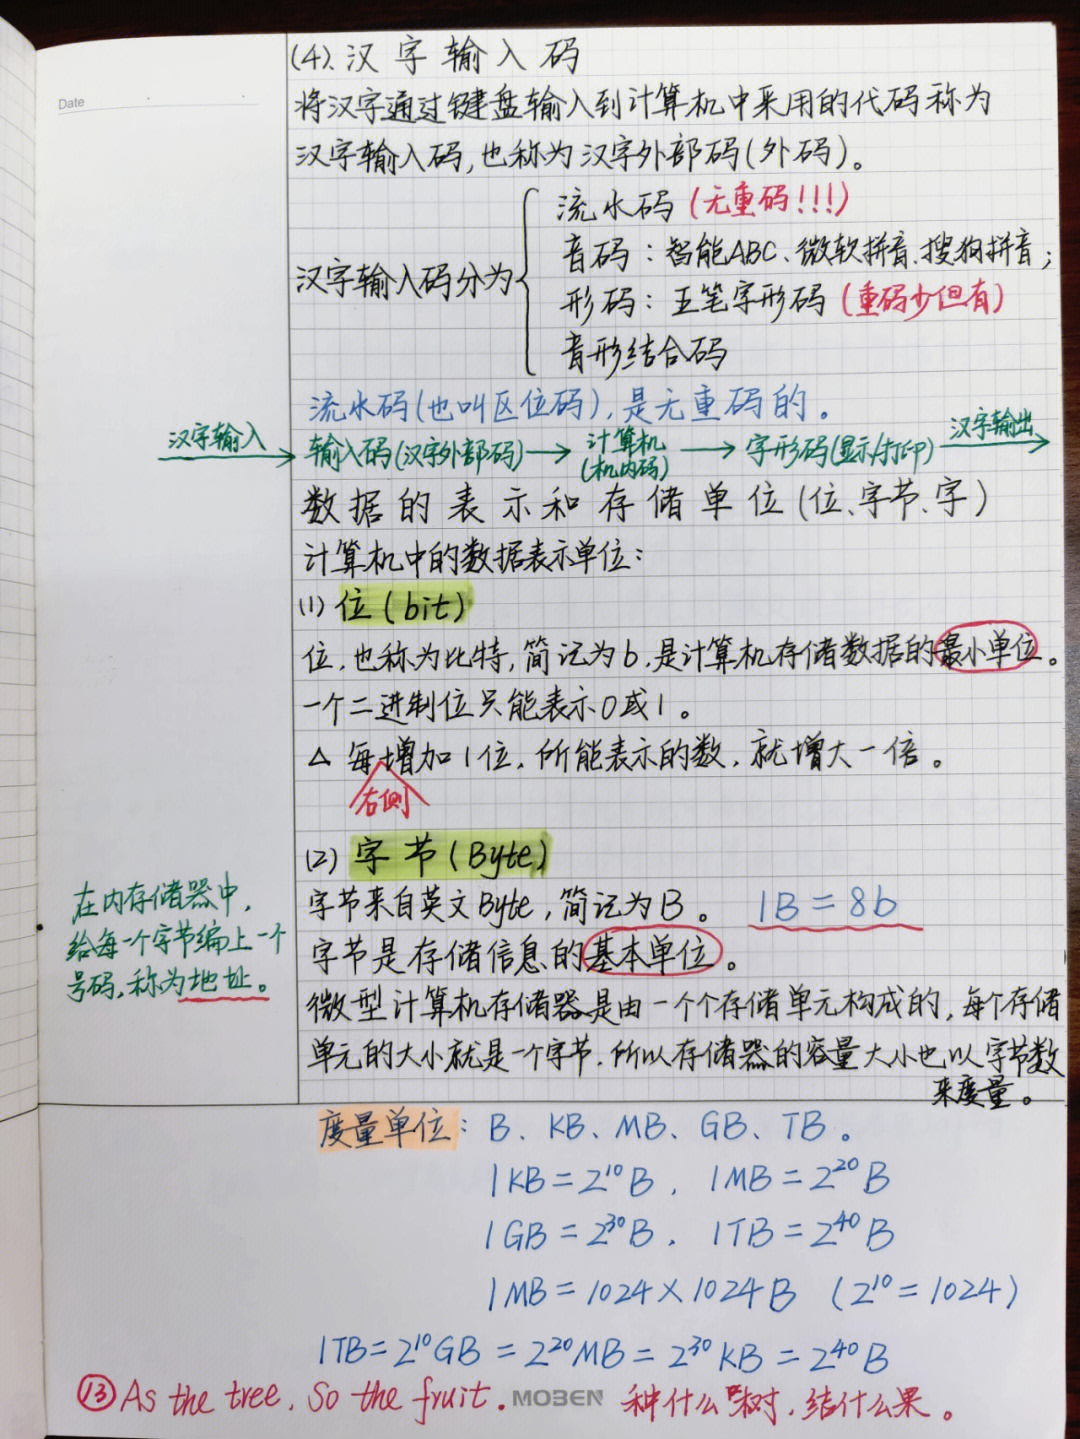 Date
(4).汉字输入码
将汉字通过键盘输入到计算机中采用的代码称为
汉字输入码,也称为汉字外部码(外码)。
汉字输入码分为
流水码(无重码!!!)
音码:智能ABC、微软拼音、搜狗拼音;
形码:五笔字形码(重码少但有)
音形结合码
流水码(也叫区位码),是无重码的。
汉字输入 输入码(汉字外部码)→计算机(机内码)→字形码(显示/打印) 汉字输出
数据的表示和存储单位(位、字节、字)
计算机中的数据表示单位:
(1)位(bit)
位,也称为比特,简记为b,是计算机存储数据的最小单位。
一个二进制位只能表示0或1。
△每增加1位,所能表示的数,就增大一倍。
右侧
(2)字节(Byte)
字节来自英文Byte,简记为B。 1B=8b
字节是存储信息的基本单位。
在内存储器中,
给每一个字节编上一个
号码,称为地址。
微型计算机存储器是由一个个存储单元构成的,每个存储
单元的大小就是一个字节.所以存储器的容量大小也以字节数
来度量。
度量单位:B、KB、MB、GB、TB。
1KB=2¹⁰B, 1MB=2²⁰B
1GB=2³⁰B, 1TB=2⁴⁰B
1MB=1024×1024B (2¹⁰=1024)
1TB=2¹⁰GB=2²⁰MB=2³⁰KB=2⁴⁰B
⑬As the tree, So the fruit. MOBEN 种什么树,结什么果。